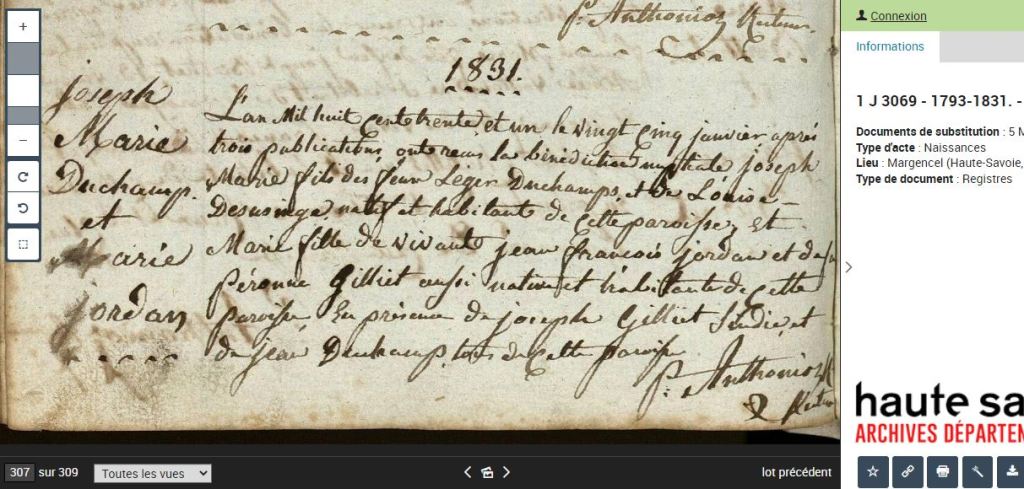 pr. Anthonioz Recteur
1831.
joseph
Marie
Duchamp.
et
Marie
jordan
L'an Mil huit Cent trente et un le vingt Cinq janvier après
trois publications, ont reçus la bénédiction nuptiale joseph
Marie fils des feux Leger Duchamps, et de Louise
natif et habitant de Cette paroisse, et
Marie fille de vivants jean françois jordan et de
péronne Gilliet aussi native et habitante de Cette
paroisse En présence de joseph Gilliet Sindic, et
de jean Duchamp tous de Cette paroisse
pr. Anthonioz
+
−
307 sur 309
Toutes les vues
lot précédent
Connexion
Informations
1 J 3069 - 1793-1831. -
Documents de substitution : 5 M
Type d'acte : Naissances
Lieu : Margencel (Haute-Savoie,
Type de document : Registres
haute sa
ARCHIVES DÉPARTEM